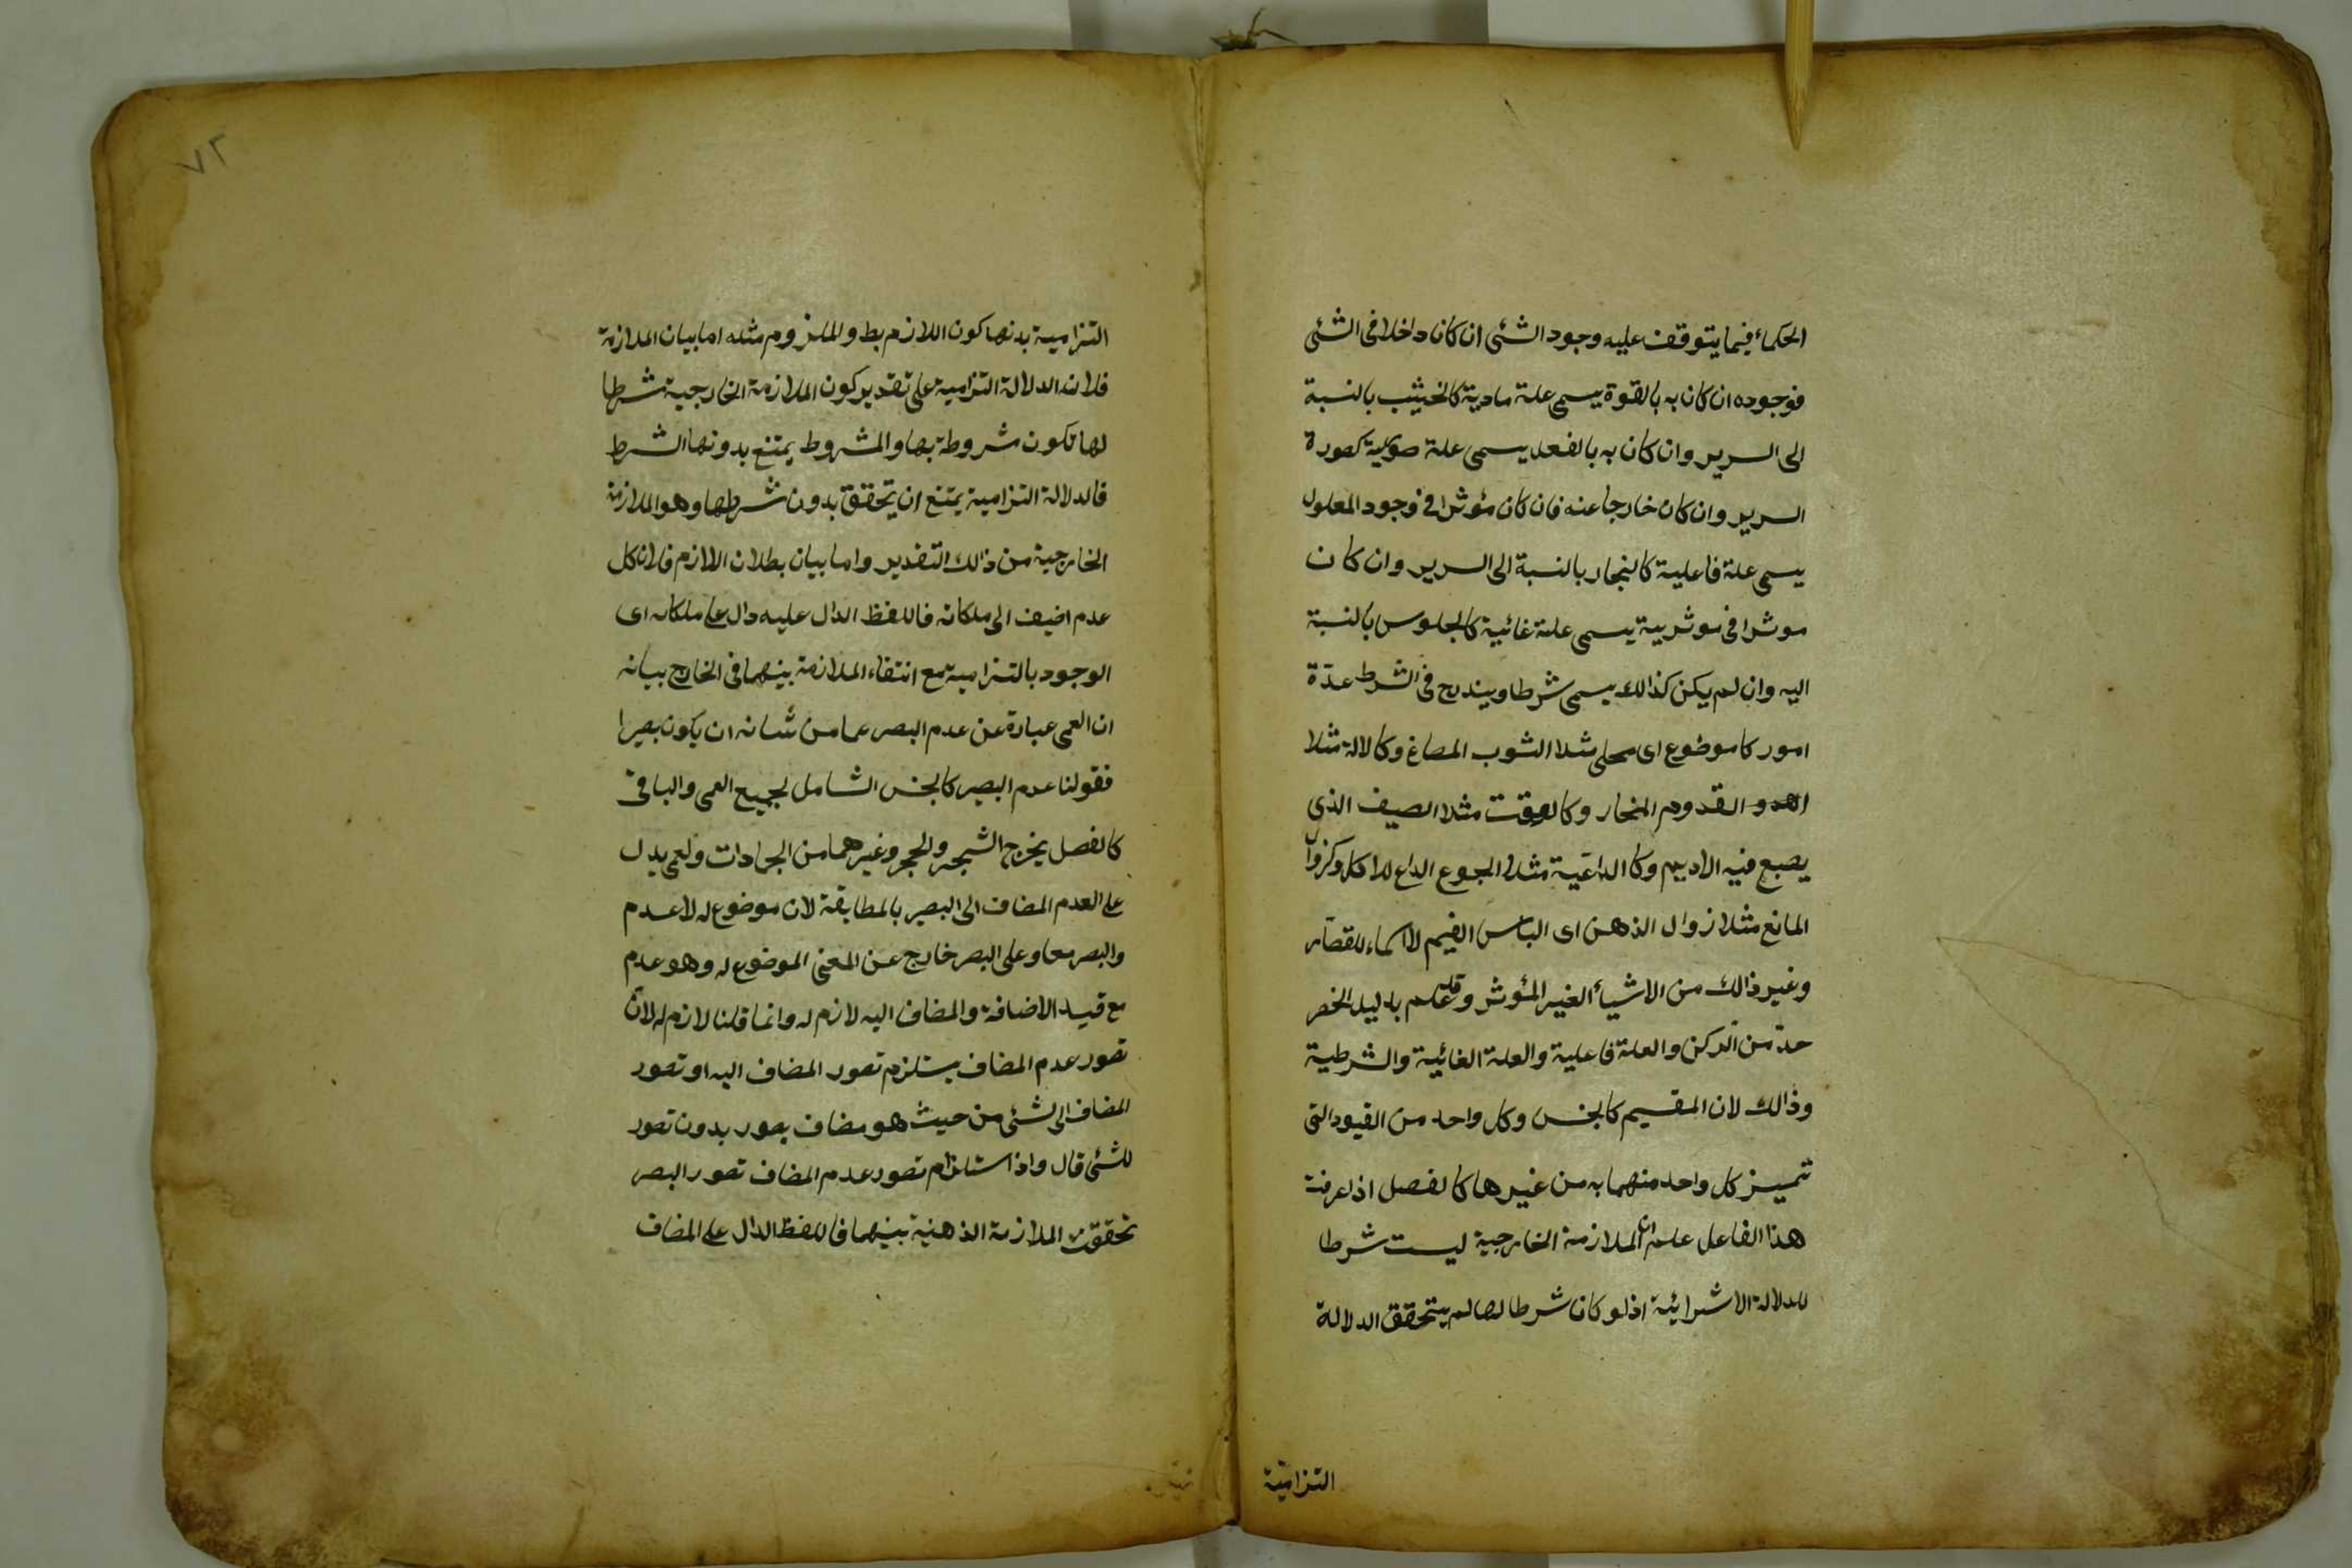 الحكماء فيما يتوقف عليه وجود الشئ ان كان داخلا فى الشئ
فوجوده ان كان به بالقوة يسمى علة مادية كالخشب بالنسبة
الى السرير وان كان به بالفعل يسمى علة صورية كصورة
السرير وان كان خارجا عنه فان كان مؤثرا فى وجود المعلول
يسمى علة فاعلية كالنجار بالنسبة الى السرير وان كان
موثرا فى موثرية يسمى علة غائية كالجلوس بالنسبة
اليه وان لم يكن كذالك يسمى شرطا ويندرج فى الشرط عدّة
امور كاموضوع اى محلى مثلا الثوب المصاغ وكالالة مثلا
القدوم النجار وكالوقت مثلا الصيف الذى
يصبع فيه الاديم وكا الداعية مثلا الجوع الداع للاكل وكزوال
المانع مثلا زوال الذهن اى الباس الغيم لا للقصار
وغير ذالك من الاشياء الغير المؤثر وقد علم بدليل الحصر
حد من الركن والعلة فاعلية والعلة الغائية والشرطية
وذالك لان المقسيم كالجنس وكل واحد من القيود التى
تميز كل واحد منهما به من غيرها كالفصل اذا عرفت
هذا الفاعل علم ان الملازمة الخارجية ليست شرطا
للدلالة الاشرائية اذلو كان شرطا لها لم يتحقق الدلالة
التزامية
٧٢
التزامية بدنها كون اللازم بط والملزوم مثله اما بيان الملازمة
فلانه الدلالة التزامية على تقدير كون الملازمة الخارجية شرطا
لها تكون شروطة بها والمشروط يمتنع بدونها الشرط
فالدلالة التزامية يمتنع ان يتحقق بدون شرطها وهو الملازمة
الخارجية من ذالك التقدير واما بيان بطلان اللازم فلان كل
عدم اضيف الى ملكاته فاللفظ الدال عليه دال على ملكاته اى
الوجود بالتزامية مع انتفاء الملازمة بينهما فى الخارج بيانه
ان العمى عبارة عن عدم البصر عما من شانه ان يكون بصيرا
فقولنا عدم البصير كالجنس الشامل لجميع العمى والباقى
كالفصل يخرج الشجر والحجر وغيرهما من الجمادات ولعمى يدل
على العدم المضاف الى البصير بالمطابقة لان موضوع له لاعدم
والبصر معا وعلى البصر خارج عن المعنى الموضوع له وهو عدم
مع قيد الاضافة والمضاف اليه لازم له وانما قلنا لازم له لان
تصور عدم المضاف يستلزم تصور المضاف اليه او تصور
المضاف الى الشئ من حيث هو مضاف بصور بدون تصور
للشئ قال واذا ستلزام تصور عدم المضاف تصور البصر
تحققت الملازمة الذهنية بينهما فاللفظ الدال على المضاف